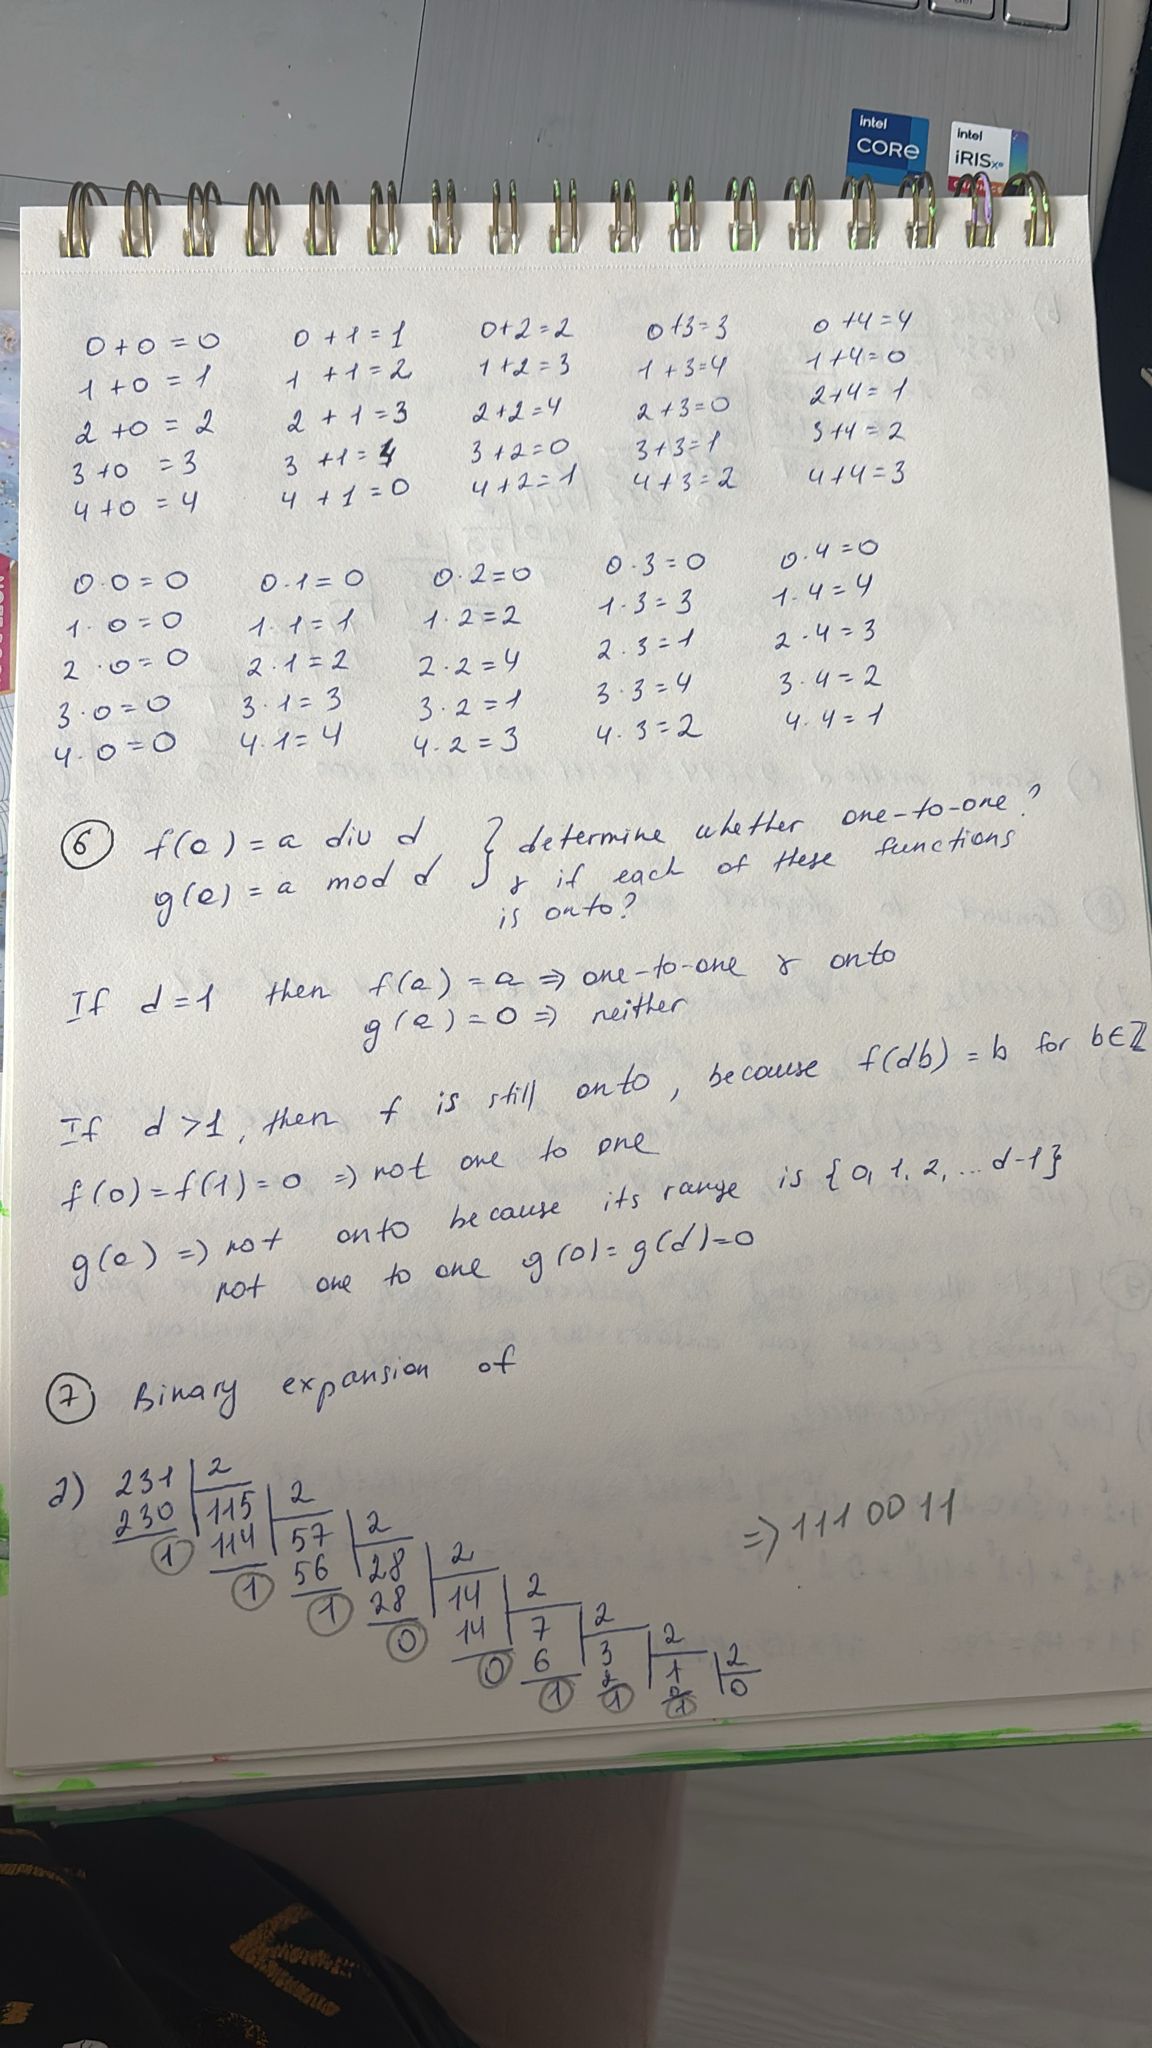 intel
CORe
intel
iRISxe
0+0=0 0+1=1 0+2=2 0+3=3 0+4=4
1+0=1 1+1=2 1+2=3 1+3=4 1+4=0
2+0=2 2+1=3 2+2=4 2+3=0 2+4=1
3+0=3 3+1=4 3+2=0 3+3=1 3+4=2
4+0=4 4+1=0 4+2=1 4+3=2 4+4=3
0·0=0 0·1=0 0·2=0 0·3=0 0·4=0
1·0=0 1·1=1 1·2=2 1·3=3 1·4=4
2·0=0 2·1=2 2·2=4 2·3=1 2·4=3
3·0=0 3·1=3 3·2=1 3·3=4 3·4=2
4·0=0 4·1=4 4·2=3 4·3=2 4·4=1
6 f(a) = a div d } determine whether one-to-one?
g(a) = a mod d & if each of these functions
is onto?
If d=1 then f(a) = a => one-to-one & onto
g(a) = 0 => neither
If d>1, then f is still onto, because f(db) = b for b∈ℤ
f(0)=f(1)=0 => not one to one
g(a) => not onto because its range is {0,1,2,...d-1}
not one to one g(0)=g(d)=0
7 Binary expansion of
a) 231 | 2
230 | 115 | 2
1 114 | 57 | 2
1 56 | 28 | 2
1 28 | 14 | 2
0 14 | 7 | 2
0 6 | 3 | 2
1 2 | 1 | 2
1 0 | 0
1
=> 1110011